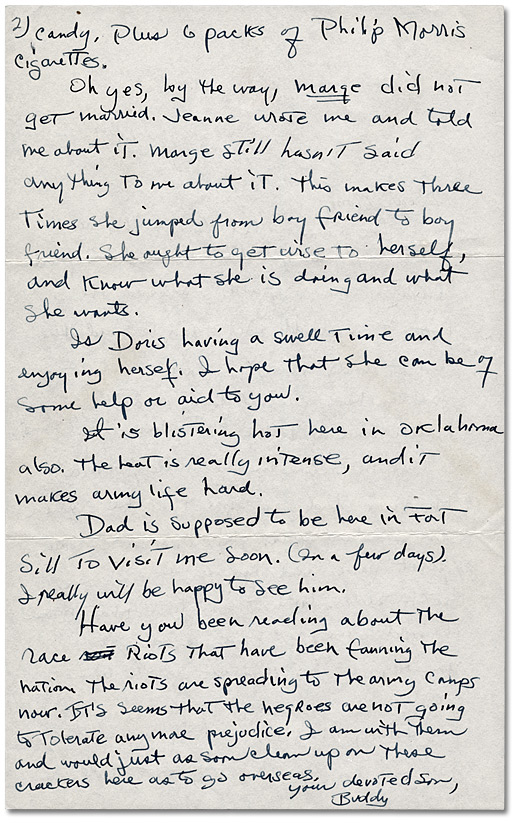 2) candy. Plus 6 packs of Philip Morris
cigarettes.
Oh yes, by the way, marge did not
get married. Jeanne wrote me and told
me about it. Marge still hasn't said
anything to me about it. This makes three
times she jumped from boy friend to boy
friend. She ought to get wise to herself,
and know what she is doing and what
she wants.
Is Doris having a swell time and
enjoying herself. I hope that she can be of
some help or aid to you.
It is blistering hot here in Oklahoma
also. The heat is really intense, and it
makes army life hard.
Dad is supposed to be here in Fort
Sill to visit me soon. (In a few days).
I really will be happy to see him.
Have you been reading about the
race Riots that have been fanning the
nation. The riots are spreading to the army camps
now. It's seems that the negroes are not going
to tolerate anymore prejudice. I am with them
and would just as soon clean up on these
crackers here as to go overseas.
your devoted son,
Buddy